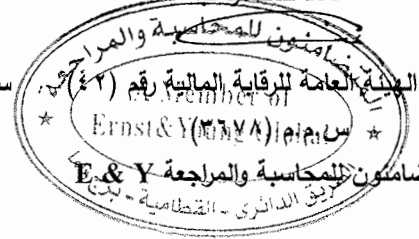 المتضامنون للمحاسبة والمراجعة
الهيئة العامة للرقابة المالية رقم (٤٢)
A member of
Ernst & Young Global
س.م.م (٣٦٧٨)
المتضامنون للمحاسبة والمراجعة E & Y
الطريق الدائرى - القطامية -